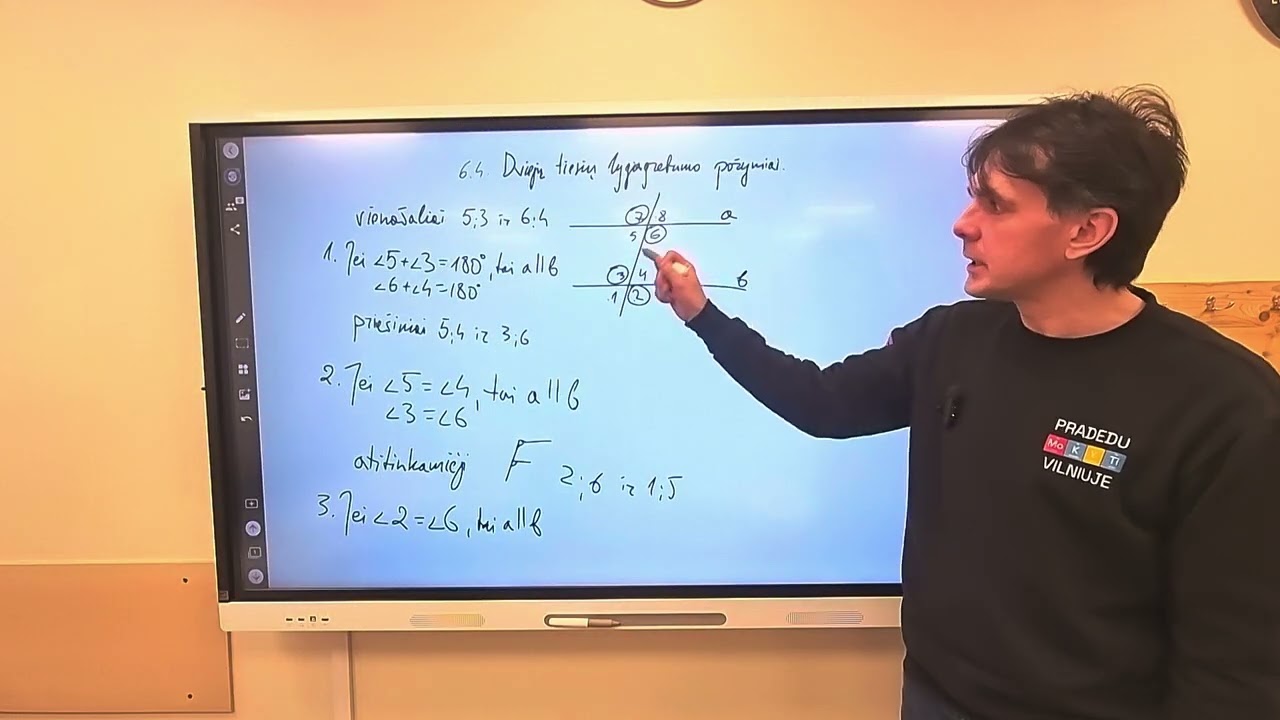 6.4. Dviejų tiesių lygiagretumo požymiai.
vienašaliai 5;3 ir 6;4
7 8 a
5 6
1. Jei ∠5+∠3=180°, tai a||b
∠6+∠4=180°
3 4 b
1 2
priešiniai 5;4 ir 3;6
2. Jei ∠5=∠4, tai a||b
∠3=∠6
atitinkamieji F 2;6 ir 1;5
3. Jei ∠2=∠6, tai a||b
PRADEDU
Mo K Y Ti
VILNIUJE